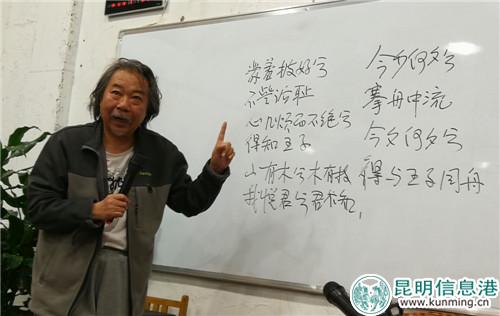 蒙羞披好兮
不訾诟耻
心几烦而不绝兮
得知王子
山有木兮木有枝
我悦君兮君不知,
今夕何夕兮
搴舟中流
今夕何夕兮
得与王子同舟
昆明信息港
www.kunming.cn